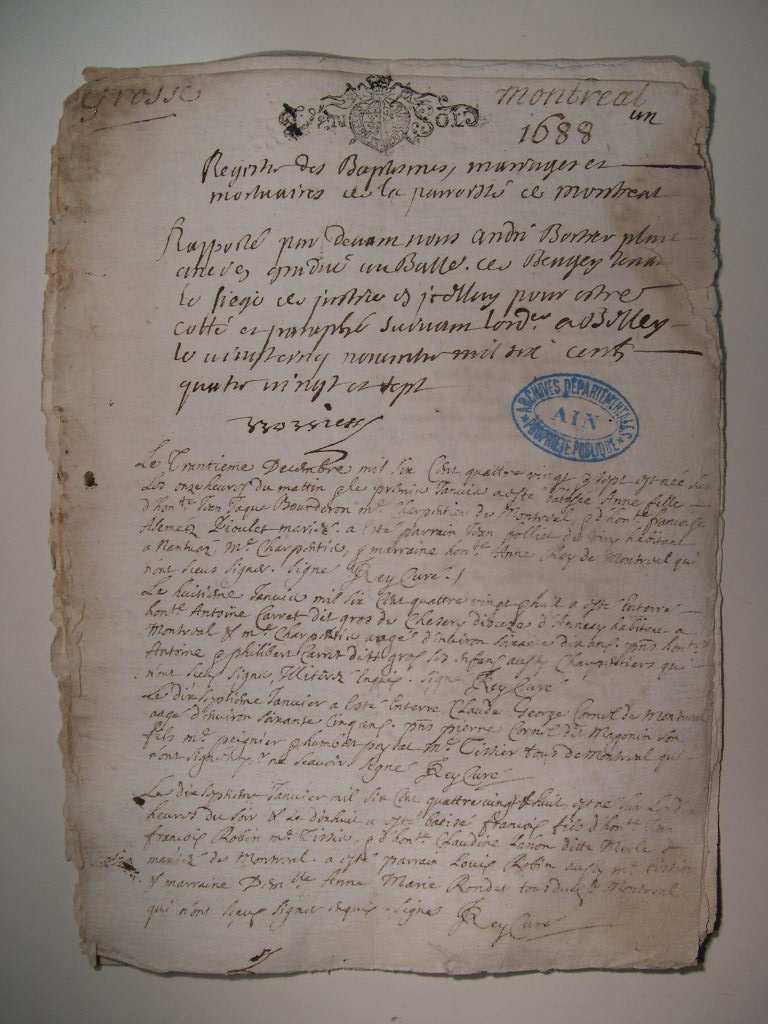 Grosse
montreal
un
1688
Registre des Baptesmes, marriages et
mortuaires de la parroisse de montreal
Rapporté par devant nous andré
de Beugey tenant
le siege de justice pour estre
cotté et paraphé suivant lord.e a Belley
le vingt cinq novembre mil six cents
quatre vingt et sept
ARCHIVES DÉPARTEMENTALES
AIN
PROPRIÉTÉ PUBLIQUE
Le Trantieme Decembre mil six Cent quattre vingt & sept est née sur
Les onze heures du mattin & le premier Janvier a esté batisée Anne fille
d'hon.ble Jean Jaque Bourderon m.e Charpentier de Montreal & d'hon.ble francoise
mariez. a esté parrain Jean habitant
a Nantua m.e Charpentier, & marraine hon.ble Anne Rey de Montreal qui
nont sceus signer. signé Rey Curé
Le huitieme Janvier mil six Cent quattre vingt & huit a esté Enterré
hon.ble Antoine Carret dit gros de Chesery diocese d'Annesy habitant a
Montreal & m.e Charpentier aagé d'environ ans pns hon.bles
Antoine & philibert Carret dit gros ses Enfans aussy Charpentiers qui
n'ont sceu signer, Enquis. signé Rey Curé
Le dix septieme Janvier a esté Enterré Claude George Cornet de Montreal
aagé d'environ soixante Cinq ans. pns pierre Cornet dit Magonin son
fils m.e peignier & humbert m.e Tissier tous de Montreal qui
n'ont signé pr ne scavoir signé Rey Curé
Le dix septieme Janvier mil six Cent quattre vingt & huit est né sur Les
heures du soir & Le dixhuit a esté batisé francois fils d'hon.ble
francois Robin m.e Tissier & d'hon.ble Claudine ditte Merle
mariez de Montreal. a esté parrain Louis Robin aussy m.e tissier
& marraine Anne Marie Rondet tous dudit Montreal
qui n'ont sceus signer enquis. signé Rey Curé